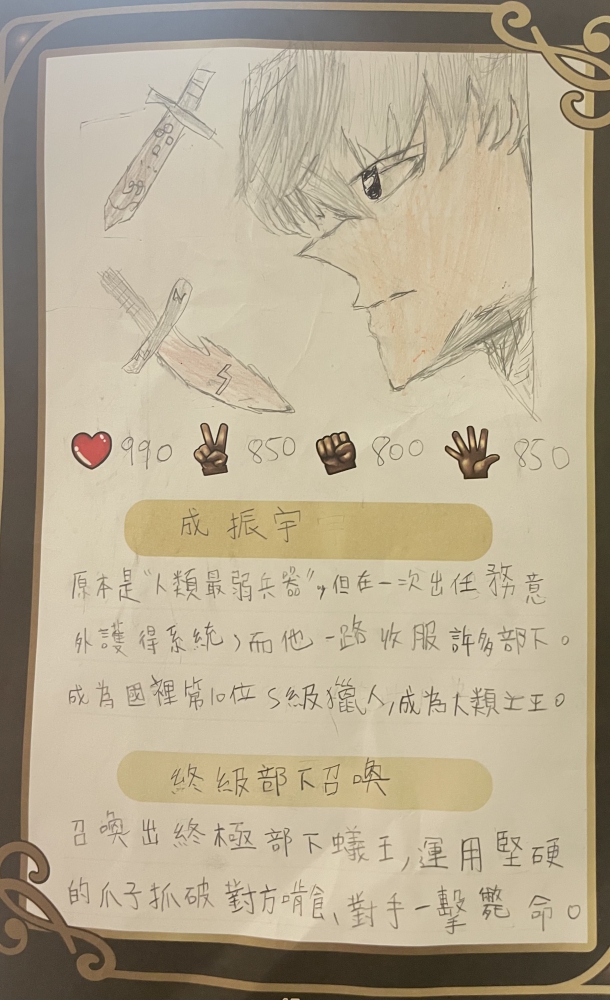 990 850 800 850
成振宇
原本是"人類最弱兵器",但在一次出任務意
外護得系統,而他一路收服許多部下。
成為國裡第10位S級獵人,成為人類之王。
終級部下召喚
召喚出終極部下蟻王,運用堅硬
的爪子抓破對方啃食、對手一擊斃命。